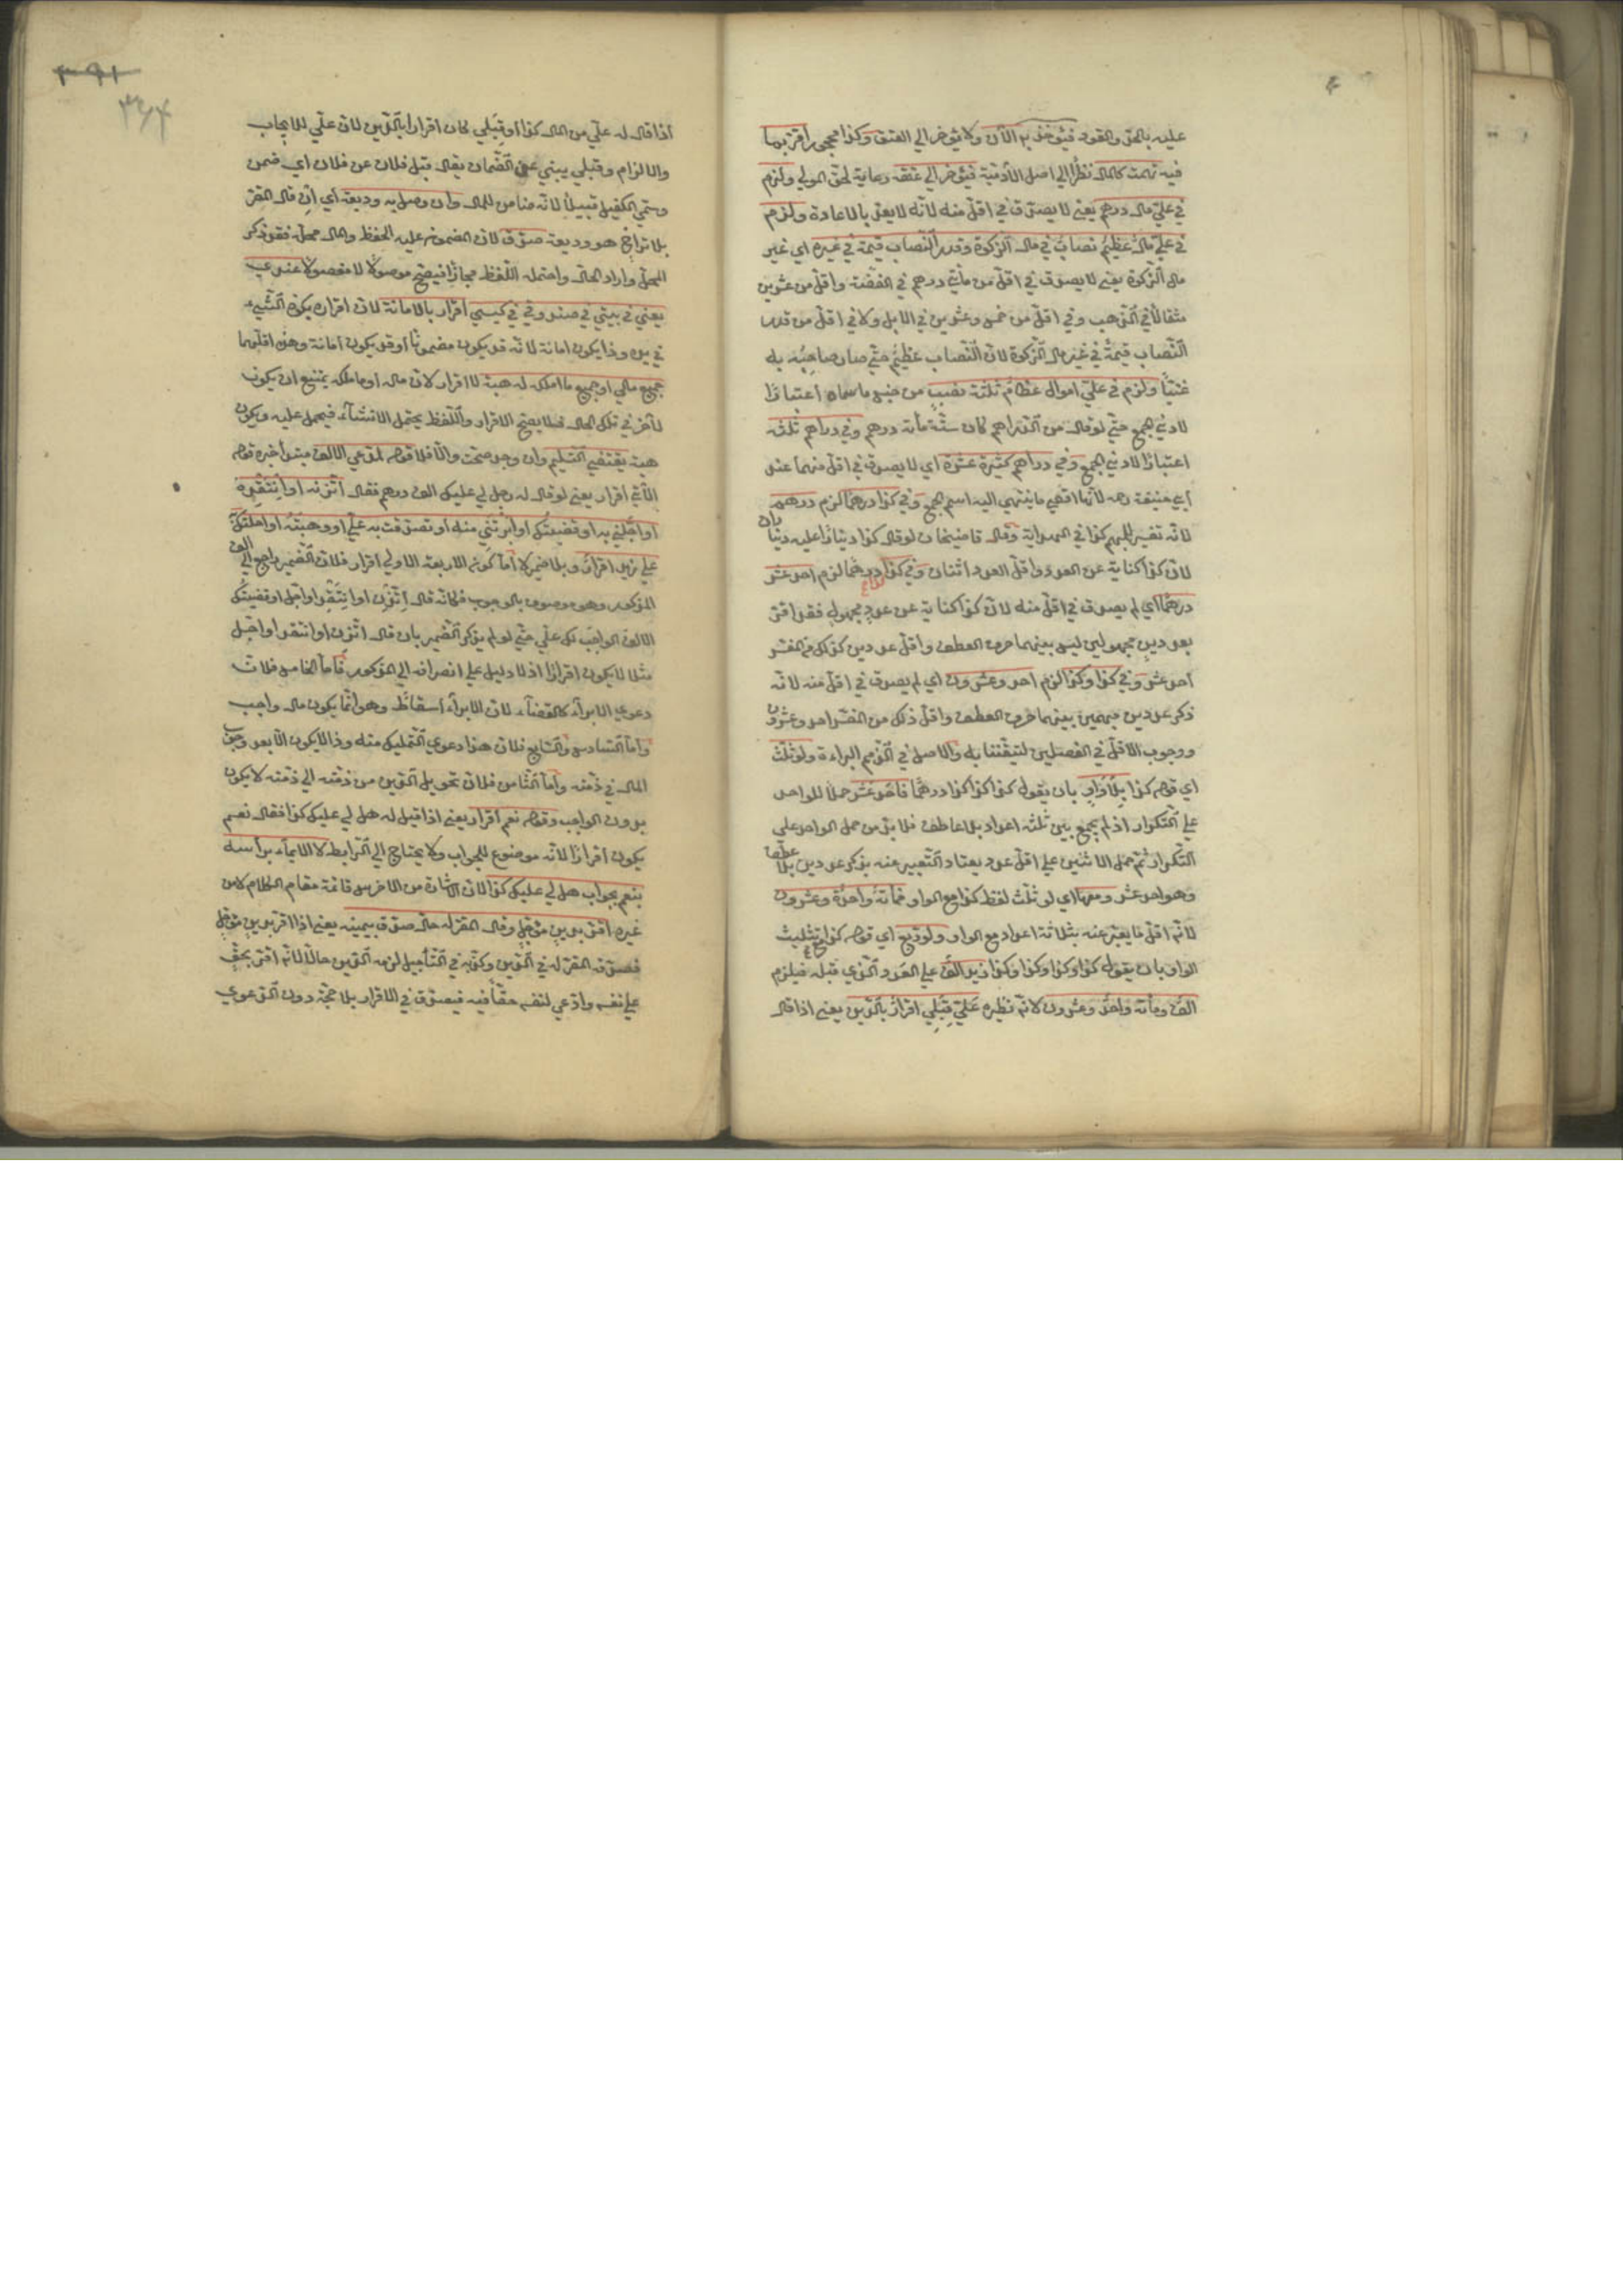 عليه بالحق والقود فيؤخذ به الآن ولا يؤخر الي العتق وكذا محجور اقر بما
فيه تهمة كالمال نظرًا الي اصل الآدمية فيؤخر الي عتقه رعاية لحق المولي ولزم
في عليّ مال درهم يعني لا يصدق في اقل منه لانه لا يعدّ مالا عادة ولزم
في عليّ مالٌ عظيمٌ نصابٌ في مال الزكوة وقدر النصاب قيمة في غيره اي غير
مال الزكوة يعني لا يصدق في اقل من مأتي درهم في الفضة واقل من عشرين
مثقالا في الذهب وفي اقل من خمس وعشرين في الابل ولا في اقل من قدر
النصاب قيمةً في غير مال الزكوة لان النصاب عظيم حتي صار صاحبه به
غنيًّا ولزم في عليّ اموال عظامٌ ثلثة نصبٍ من جنس ما سماه اعتبارًا
لادني الجمع حتي لو قال من الدراهم كان ستّة مأة درهم وفي دراهم ثلثه
اعتبارًا لادني الجمع وفي دراهم كثيرة عشرة اي لا يصدق في اقل منها عند
ابي حنيفة رحه لانها اقصي ما ينتهي اليه اسم الجمع وفي كذا درهمًا لزم درهم
لانه تفسير للمبهم كذا في الهداية وقال قاضيخان لو قال كذا دينارًا عليه ديناران
لان كذا كناية عن العدد واقل العدد اثنان وفي كذا كذا درهمًا لزم احد عشر
درهمًا اي لم يصدق في اقل منه لان كذا كناية عن عددٍ مجهولٍ فقد اقرّ
بعددين مجهولين ليس بينهما حرف العطف واقل عددين كذلك من المفسّر
احد عشر وفي كذا وكذا لزم احد وعشرون اي لم يصدق في اقل منه لانه
ذكر عددين مبهمين بينهما حرف العطف واقل ذلك من المفسّر احد وعشرون
ووجوب الاقل في الفصلين لتيقّننا به والاصل في الذمم البراءة ولو ثلّث
اي قوله كذا بلا واوٍ بان يقول كذا كذا كذا درهمًا فاحد عشر حملًا للواحد
علي التكرار اذ لم يجمع بين ثلثه اعداد بلا عاطف فلا بد من حمل الواحد علي
التكرار ثم حمل الاثنين علي اقل عدد يعتاد التعبير عنه بذكر عددين بلا عطف
وهو احد عشر ومعها اي لو ثلّث لفظ كذا مع الواو فمأةٌ واحدٌ وعشرون
لانه اقل ما يعبّر عنه بثلاثة اعداد مع الواو ولو ربّع اي قوله كذا مع تثليث
الواو بان يقول كذا وكذا وكذا وكذا زيد الفٌ علي العدد الذي قبله فيلزم
الفٌ ومأة واحدٌ وعشرون لانه نظيره عَليّ قِبَلي اقرارٌ بالدين يعني اذا قال
٣٩١
٣٦٤
اذا قال له عليّ من المال كذا او قِبَلي كان اقرارًا بالدين لان عليّ للايجاب
والالزام وقبلي يبني عن الضمان يقال قبل فلان عن فلان اي ضمن
وسمّي الكفيل قبيلًا لانه ضامن للمال وان وصل به وديعة اي ان قال المقر
بلا تراخٍ هو وديعة صدّق لان المضمون عليه الحفظ والمال محله فقد ذكر
المحلّ واراد الحالّ واحتمله اللفظ مجازًا فيصح موصولًا لا مفصولًا عندي
يعني في بيتي في صندوقي في كيسي اقرار بالامانة لان اقراره بكون الشيء
في يده وذا يكون امانة لانه قد يكون مضمونًا وقد يكون امانة وهذه اقلّهما
جميع مالي او جميع ما املكه له هبة لا اقرار لان ماله او ما ملكه يمتنع ان يكون
لآخر في تلك الحال فلا يصح الاقرار واللفظ يحتمل الانشاء فيحمل عليه ويكون
هبة يقتضي التسليم وان وجد صحت والّا فلا قوله لمدعي الالف مبتدأ خبره قوله
الآتي اقرار يعني لو قال له رجل لي عليك الف درهم فقال اتّزنه او انتقده
او اجّلني به او قضيتك او ابرئتني منه او تصدقت به عليّ او وهبته او احلتك
علي زيد اقرارٌ وبلا ضمير لا اما كون الاربعة الاولي اقرار فلان الضمير راجع الي الالف
المذكور وهو موصوف بالوجوب فكأنه قال اتّزن او انتقد او اجّل او قضيتك
الالف الواجب لك عليّ حتي لو لم يذكر الضمير بان قال اتّزن او انتقد او اجّل
مثلا لا يكون اقرارًا اذ لا دليل علي انصرافه الي المذكور فاما الخامس فلان
دعوي الابراء كالقضاء لان الابراء اسقاط وهو انما يكون مال واجب
واما السادس والسابع فلان هذا دعوي التمليك منه وذا لا يكون الا بعد وجوب
المال في ذمّته واما الثامن فلان تحويل الدين من ذمّته الي ذمّته لا يكون
بدون الواجب وقوله نعم اقرار يعني اذا قيل له هل لي عليك كذا فقال نعم
يكون اقرارًا لانه موضوع للجواب ولا يحتاج الي الرابط لا الايماء برأسه
بنعم بجواب هل لي عليك كذا لان الاشارة من الاخرس قائمة مقام الكلام لا من
غيره اقرّ بدينٍ مؤجّلٍ وقال المقر له حالّ صدّق بيمينه يعني اذا اقر بدين مؤجّل
فصدّقه المقر له في الدين وكذّبه في التأجيل لزمه الدين حالًّا لانه اقرّ بحقٍّ
علي نفسه وادعي لنفسه حقًّا فيه فيصدّق في الاقرار بلا حجّة دون الدعوي